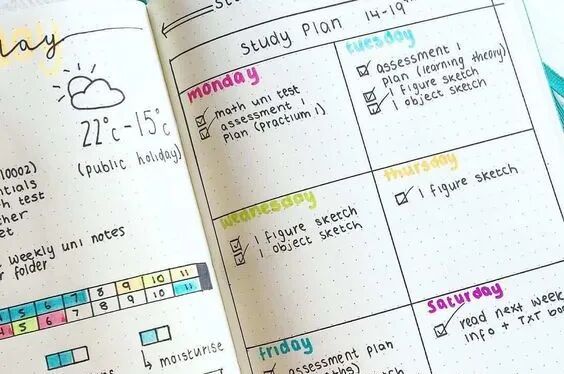 day
22°c-15°c
(public holiday)
10002)
test
weekly uni notes
folder
7 8 9 10 11
5 6 7 8 9 10 11
moisturise
study plan 14-19th
monday
math uni test
assessment 1
plan (practium 1)
tuesday
assessment 1
plan (learning theory)
1 figure sketch
1 object sketch
wednesday
1 figure sketch
1 object sketch
thursday
1 figure sketch
friday
assessment plan
saturday
read next week
info + TXT